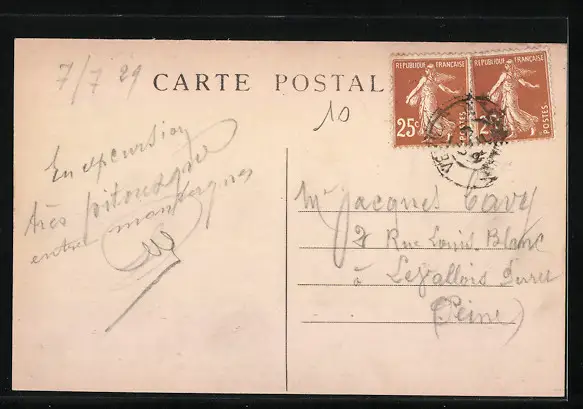 7/7 29
CARTE POSTALE
10
REPUBLIQUE FRANÇAISE
25c
POSTES
REPUBLIQUE FRANÇAISE
2
POSTES
En excursion
très pitoresque
entre
Mr Jacques Cavy
Rue Louis-Blanc
à Levallois Perret
(Seine)